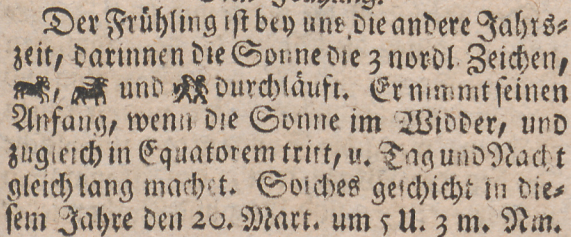 Der Frühling ist bey uns die andere Jahrs-
zeit, darinnen die Sonne die 3 nordl. Zeichen,
♈, ♉ und ♊ durchläuft. Er nimmt seinen
Anfang, wenn die Sonne im Widder, und
zugleich in Equatorem tritt, u. Tag und Nacht
gleich lang machet. Solches geschicht in die-
sem Jahre den 20. Mart. um 5 U. 3 m. Nm.